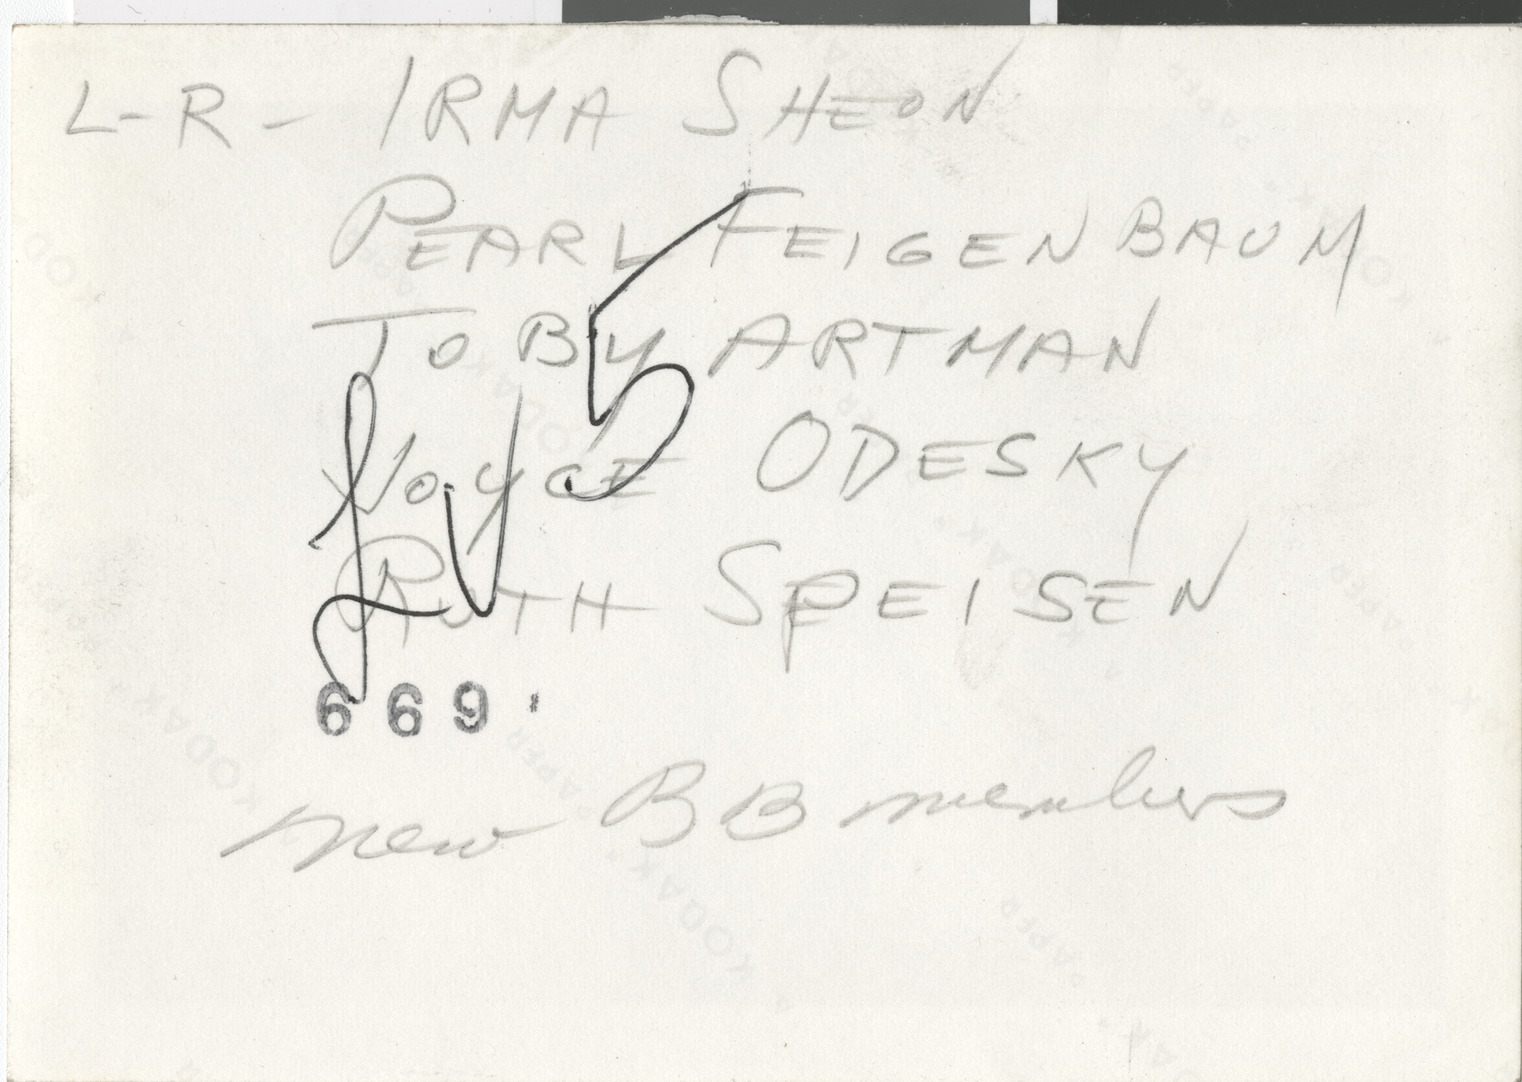 L-R- IRMA SHEON
PEARL FEIGENBAUM
TOBY ARTMAN
JOYCE ODESKY
RUTH SPEISEN
669
new BB members